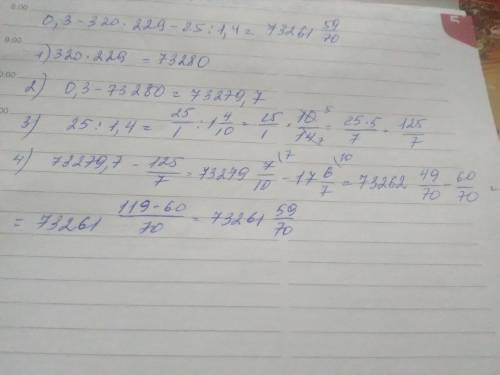 0,3-320·229-25:1,4= 73261 59/70
1) 320·229 = 73280
2) 0,3-73280 = 73279,7
3) 25:1,4 = 25/1 : 1 4/10 = 25/1 · 10/14 5 7 = 25·5/7 = 125/7
4) 73279,7 - 125/7 = 73279 7/10 \7 - 17 6/7 \10 = 73262 49/70 - 60/70 =
= 73261 119-60/70 = 73261 59/70